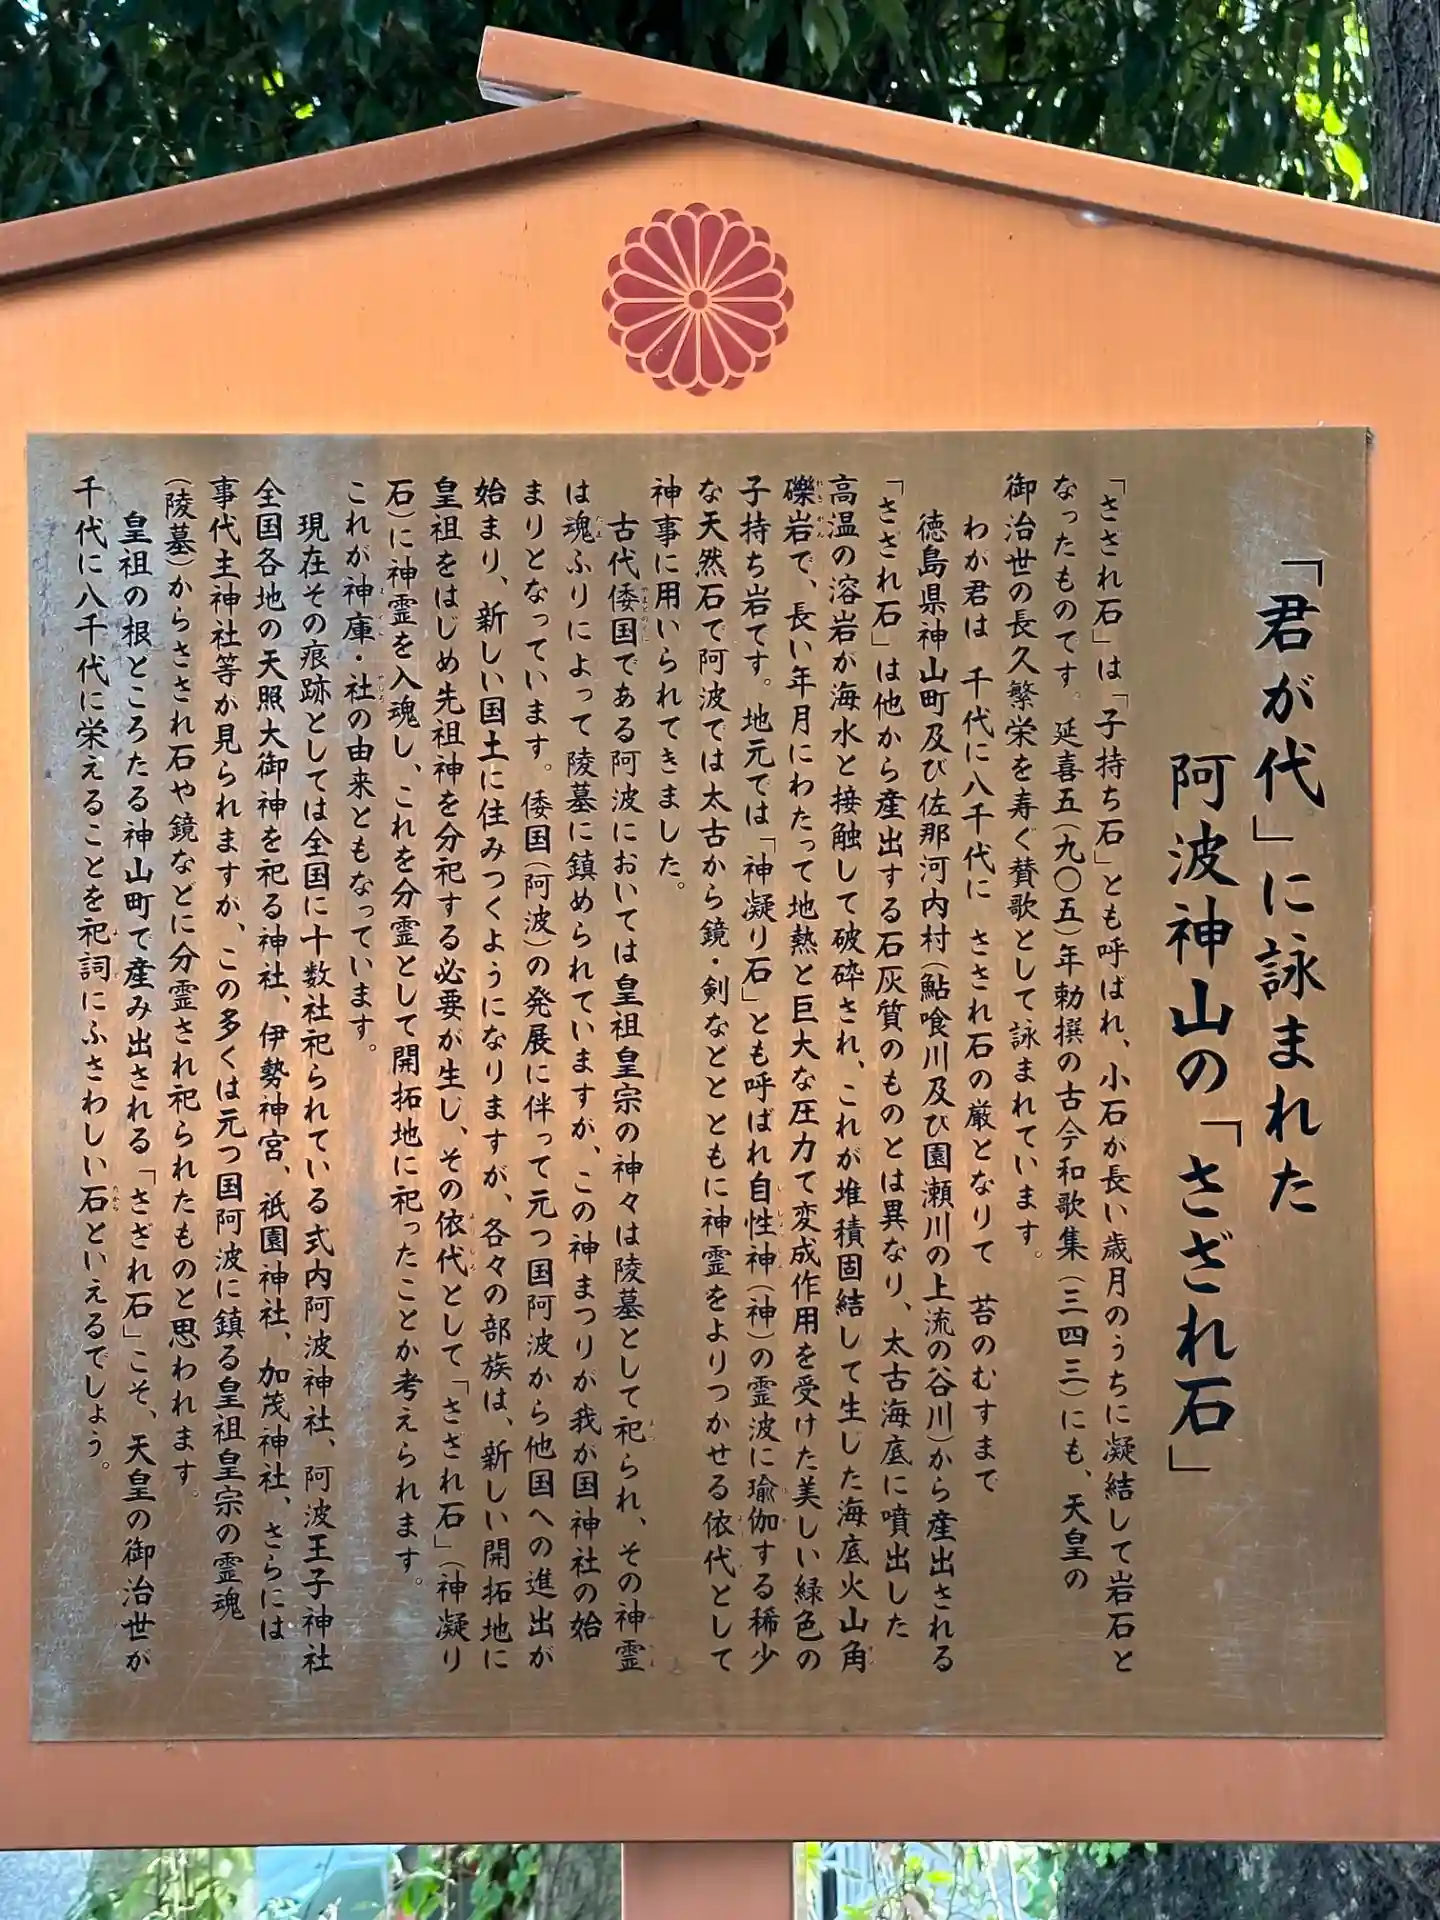 「君が代」に詠まれた
阿波神山の「さざれ石」
「さざれ石」は「子持ち石」とも呼ばれ、小石が長い歳月のうちに凝結して岩石と
なったものです。延喜五(九〇五)年勅撰の古今和歌集(三四三)にも、天皇の
御治世の長久繁栄を寿ぐ賛歌として詠まれています。
わが君は 千代に八千代に さざれ石の巌となりて 苔のむすまで
徳島県神山町及び佐那河内村(鮎喰川及び園瀬川の上流の谷川)から産出される
「さざれ石」は他から産出する石灰質のものとは異なり、太古海底に噴出した
高温の溶岩が海水と接触して破砕され、これが堆積固結して生した海底火山角
礫岩で、長い年月にわたって地熱と巨大な圧力で変成作用を受けた美しい緑色の
子持ち岩です。地元では「神凝り石」とも呼ばれ自性神(神)の霊波に瑜伽する稀少
な天然石で阿波では太古から鏡・剣などとともに神霊をよりつかせる依代として
神事に用いられてきました。
古代倭国である阿波においては皇祖皇宗の神々は陵墓として祀られ、その神霊
は魂ふりによって陵墓に鎮められていますが、この神まつりが我が国神社の始
まりとなっています。倭国(阿波)の発展に伴って元つ国阿波から他国への進出が
始まり、新しい国土に住みつくようになりますが、各々の部族は、新しい開拓地に
皇祖をはじめ先祖神を分祀する必要が生し、その依代として「さざれ石」(神凝り
石)に神霊を入魂し、これを分霊として開拓地に祀ったことか考えられます。
これが神庫・社の由来ともなっています。
現在その痕跡としては全国に十数社祀られている式内阿波神社、阿波王子神社
全国各地の天照大御神を祀る神社、伊勢神宮、祇園神社、加茂神社、さらには
事代主神社等か見られますが、この多くは元つ国阿波に鎮る皇祖皇宗の霊魂
(陵墓)からさざれ石や鏡などに分霊され祀られたものと思われます。
皇祖の根ところたる神山町で産み出される「さざれ石」こそ、天皇の御治世が
千代に八千代に栄えることを祀詞にふさわしい石といえるでしょう。